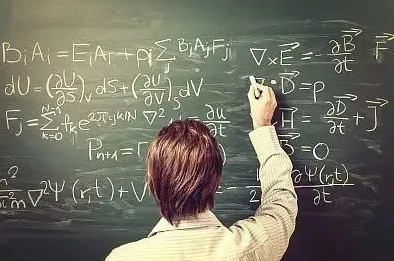 BᵢAᵢ = EᵢAᵢ + ρᵢ Σⱼ BⱼAⱼFⱼ
∇×E⃗ = -∂B⃗/∂t F⃗
dU = (∂U/∂S)ᵥ dS + (∂U/∂V)ₛ dV
∇·D⃗ = ρ
Fⱼ = Σₖ₌₀ᴺ⁻¹ fₖ e^(2πijk/N) ∇² ∂u/∂t
H⃗ = ∂D⃗/∂t + J⃗
Pₙ₊₁ = r
= 0
²/2m ∇²Ψ(r,t) + V
∂Ψ(r,t)/∂t